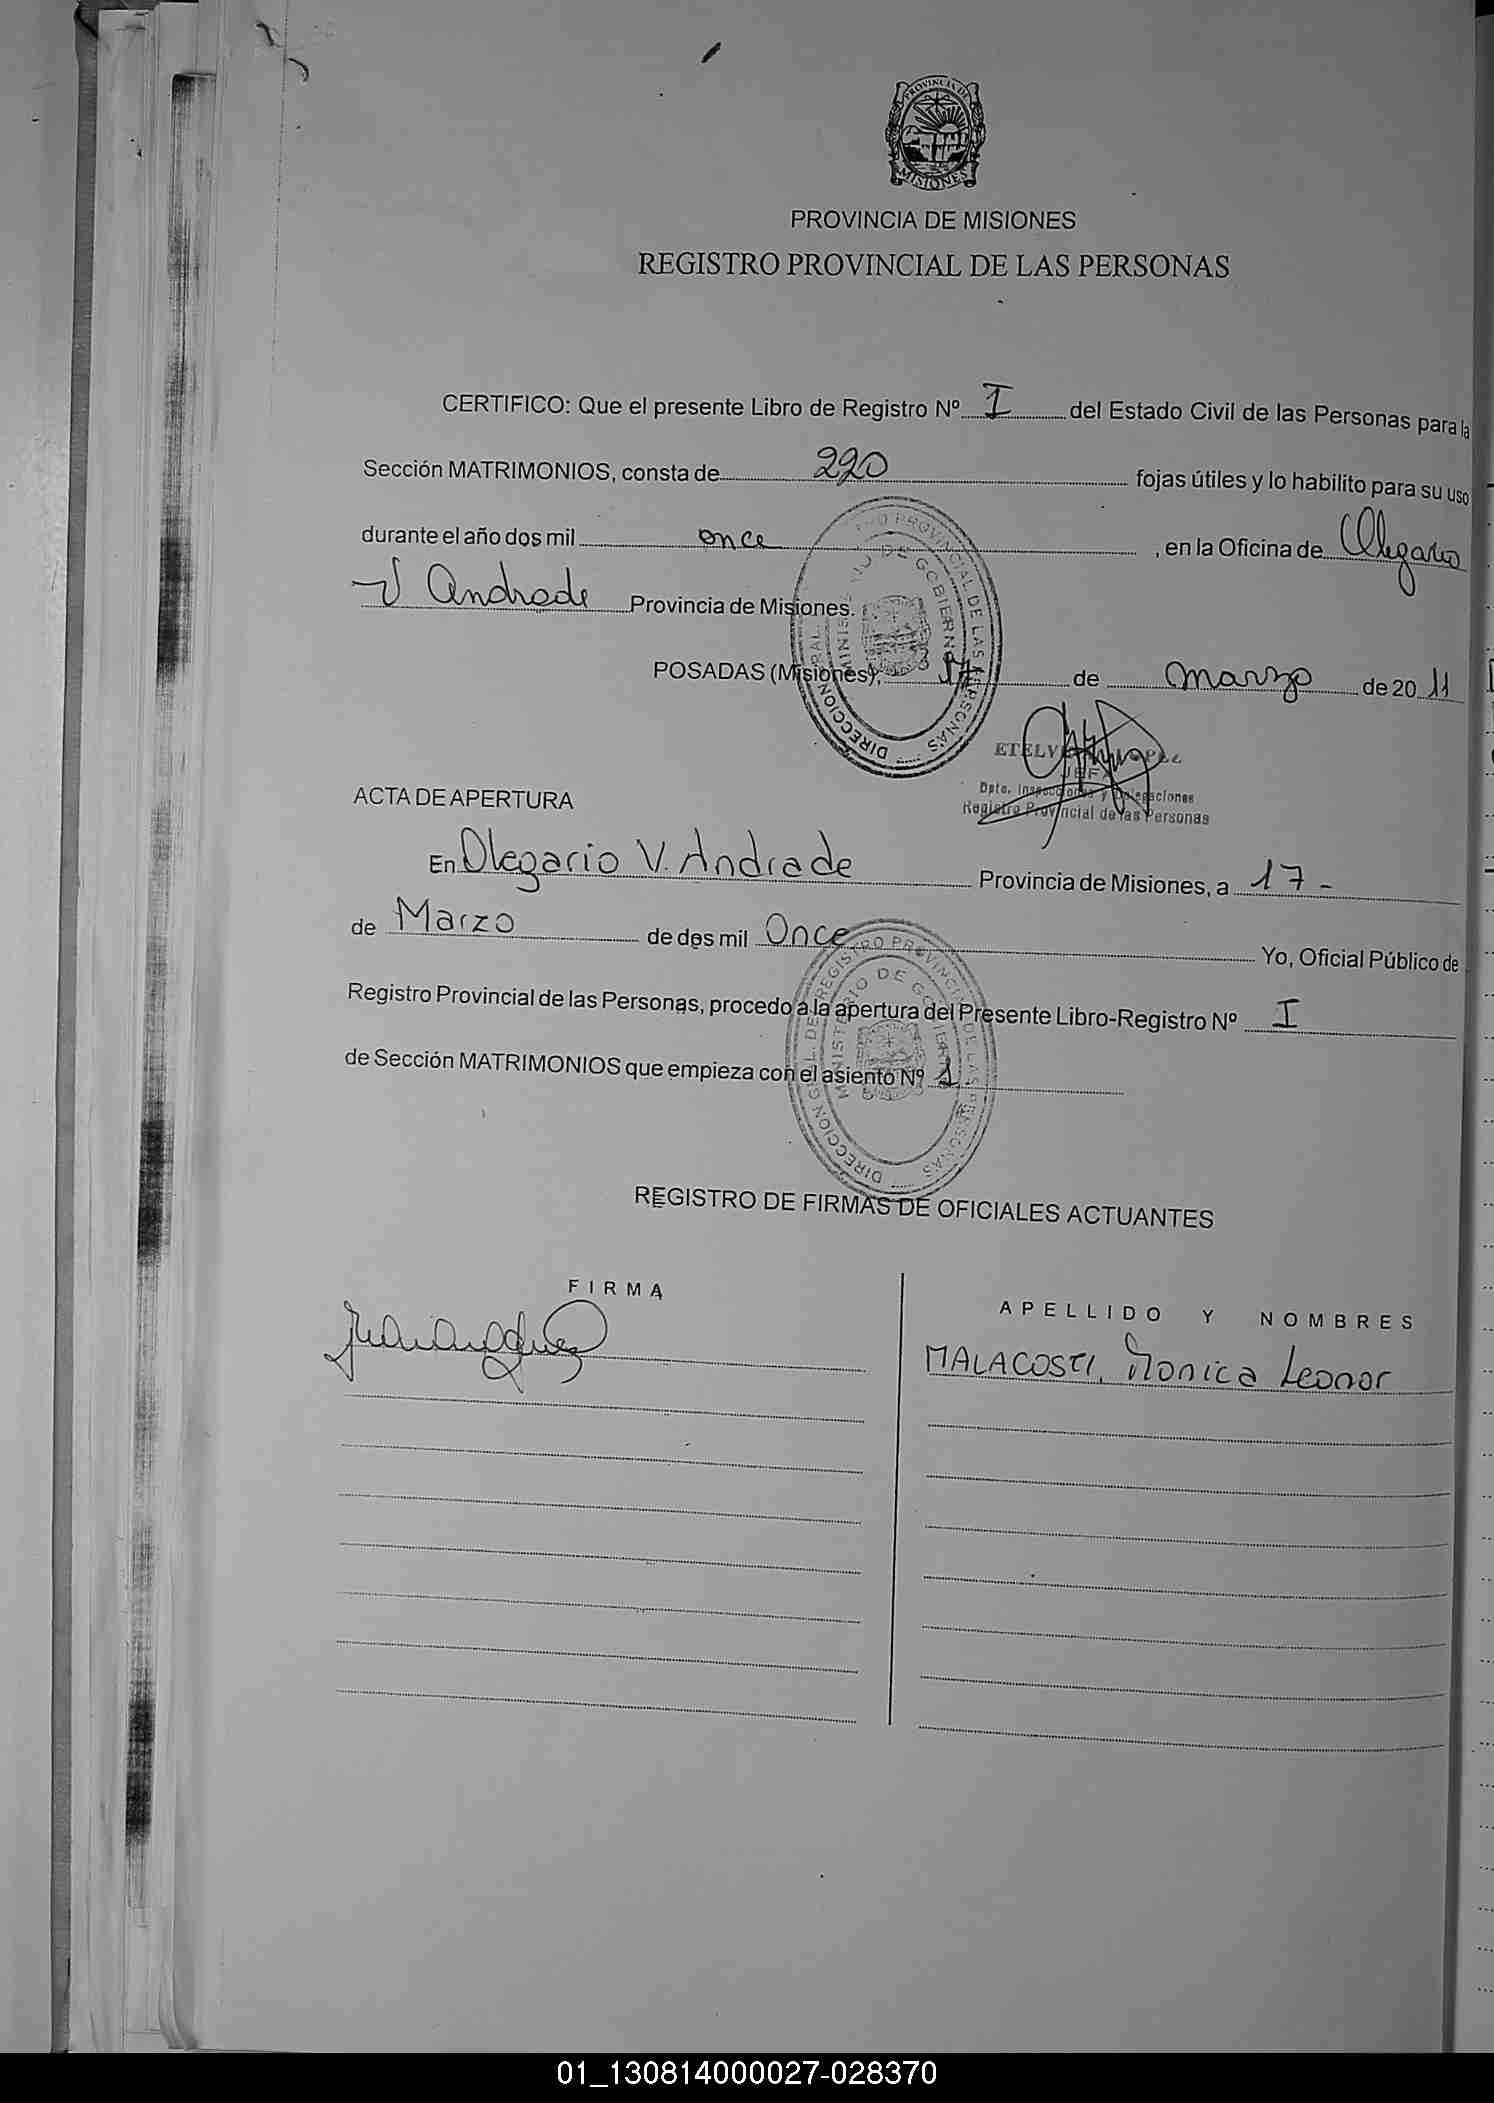 PROVINCIA DE
MISIONES
PROVINCIA DE MISIONES
REGISTRO PROVINCIAL DE LAS PERSONAS
CERTIFICO: Que el presente Libro de Registro Nº I del Estado Civil de las Personas para la
Sección MATRIMONIOS, consta de 220 fojas útiles y lo habilito para su uso
durante el año dos mil once, en la Oficina de Olegario
V Andrade Provincia de Misiones.
POSADAS (Misiones), 17 de marzo de 2011
JEFA
Dpto. Inspecciones y Delegaciones
Registro Provincial de las Personas
ACTA DE APERTURA
En Olegario V. Andrade Provincia de Misiones, a 17-
de Marzo de dos mil Once Yo, Oficial Público de
Registro Provincial de las Personas, procedo a la apertura del Presente Libro-Registro Nº I
de Sección MATRIMONIOS que empieza con el asiento Nº 1.
DIRECCION GRAL. DEL REGISTRO PROVINCIAL DE LAS PERSONAS
MINISTERIO DE GOBIERNO
REGISTRO DE FIRMAS DE OFICIALES ACTUANTES
FIRMA
APELLIDO Y NOMBRES
MALACOSTI, Monica Leonor
01_130814000027-028370